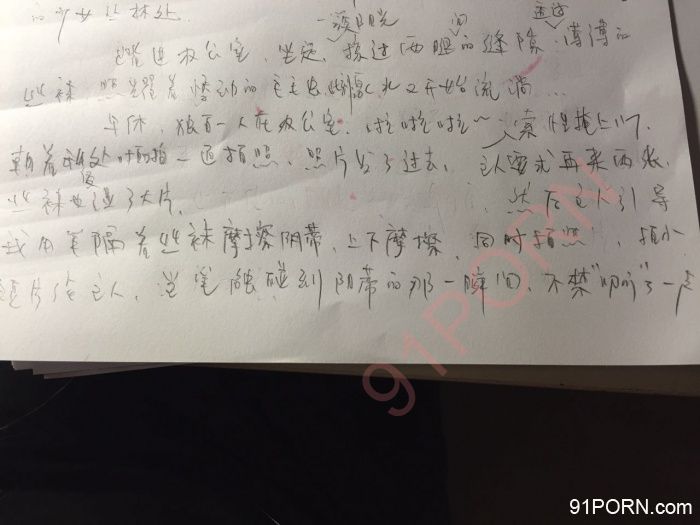 的少女丛林处
一簇阳光 间 透过
踏进办公室，坐定，两腿的缝隙，薄薄的
丝袜 照耀着 动的 水又开始流淌…
午休，独自一人在办公室，啦啦啦~ 索性掩上门，
朝着私处 拍一通拍照，照片发了过去，主人要求再来两张，
丝袜也湿了大片， 后 然后主人引导
我用笔隔着丝袜摩擦阴蒂，上下摩擦，同时拍照，拍小
片给主人，当笔触碰到阴蒂的那一瞬间，不禁“ ”了一声
91PORN
91PORN.com